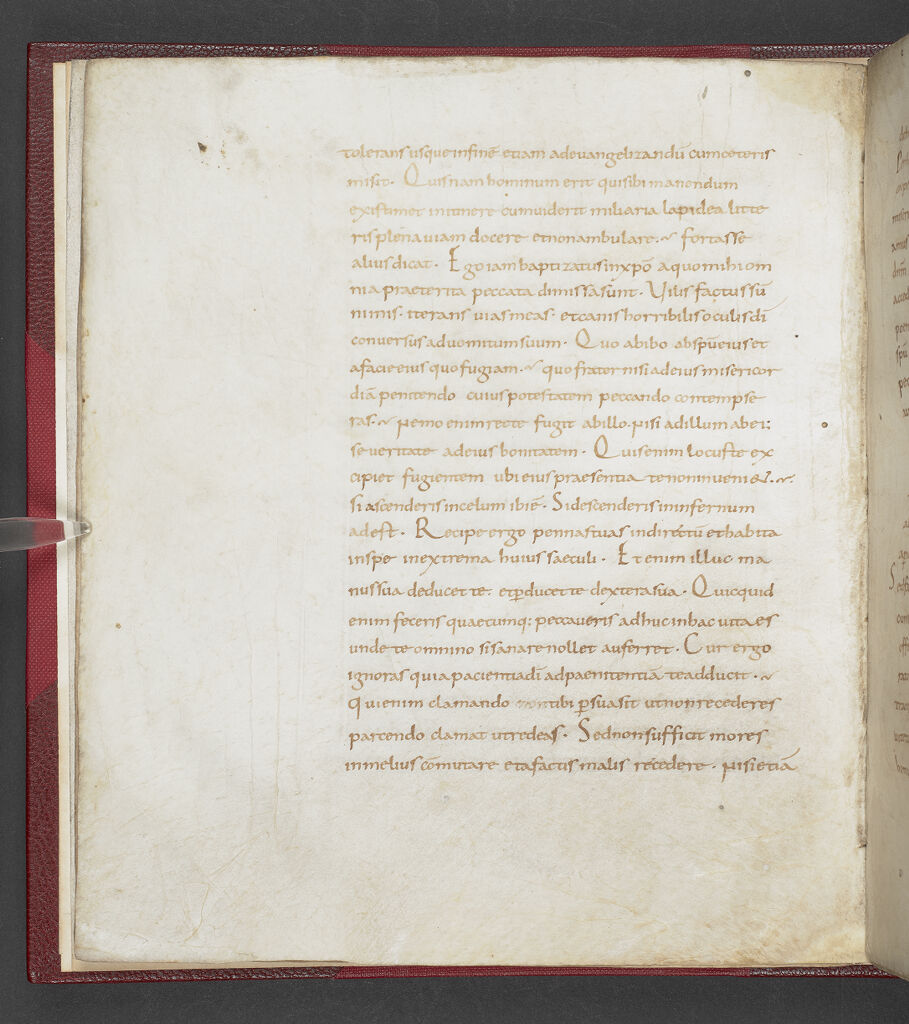 tolerans usque infinē etiam adevangelizandū cumceteris
misit. Quisnam hominum erit quisibi manendum
existimet initinere cumviderit miliaria lapidea litte
ris plena viam docere etnonambulare. fortasse
alius dicat. Ego iam baptizatus inxp̄o aquo mihi om
nia praeterita peccata dimissa sunt. Vilis factus sū
nimis. iterans vias meas. et canis horribilis oculis dī
conversus advomitum suum. Quo abibo abspū eius et
afacie eius quo fugiam. quo frater nisi adeius misericor
diā penitendo cuius potestatem peccando contempse
ras. Nemo enim recte fugit abillo. Nisi adillum abei:
severitate adeius bonitatem. Quis enim locus te ex
cipiet fugientem ubi eius praesentia te non inveni&.
si ascenderis incelum ibiē. Si descenderis in infernum
adest. Recipe ergo pennas tuas indirectū et habita
inspe in extrema huius saeculi. Et enim illuc ma
nus sua deducet te. et p̄ducet te dextera sua. Quicquid
enim feceris quaecumq: peccaveris adhuc inhac vita es
unde te omnino si sanare nollet auferret. Cur ergo
ignoras quia pacientia dī ad paenitentiā te adducit.
Qui enim clamando tibi p̄suasit ut non recederes
parcendo clamat ut redeas. Sed non sufficit mores
inmelius cōmutare et afactis malis recedere. Nisi etiā